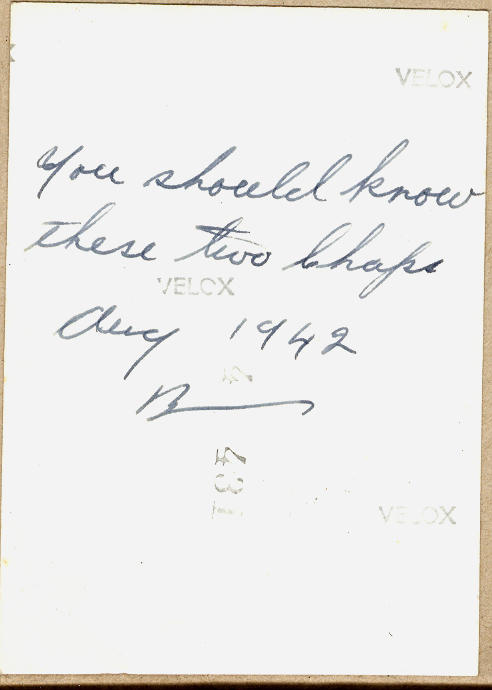 VELOX
You should know
these two Chaps
VELOX
Aug 1942
VELOX